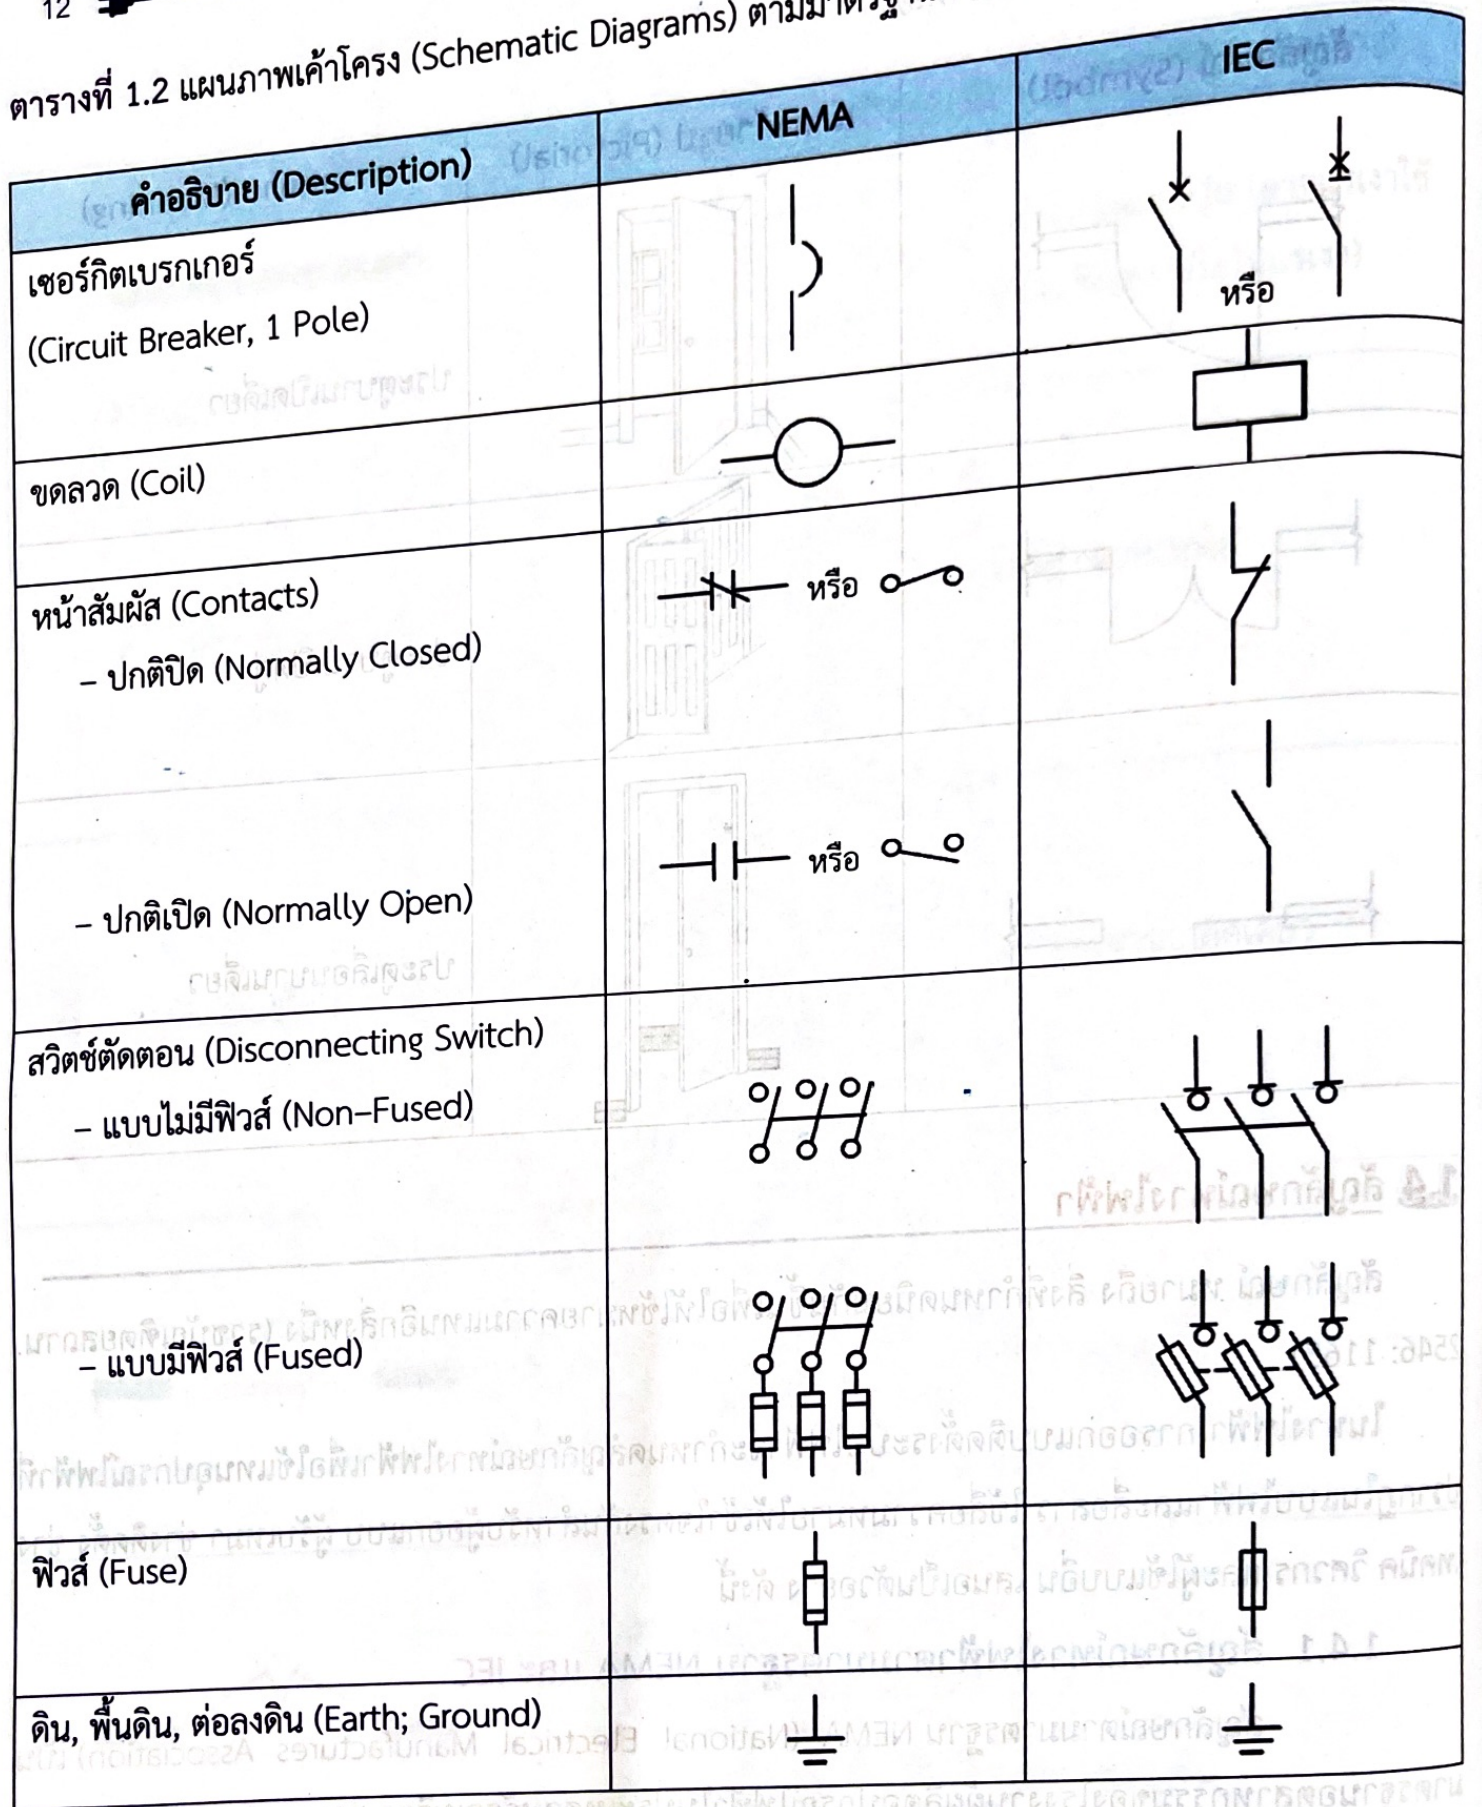 12
ตารางที่ 1.2 แผนภาพเค้าโครง (Schematic Diagrams)
คำอธิบาย (Description) NEMA IEC
เซอร์กิตเบรกเกอร์
(Circuit Breaker, 1 Pole)
หรือ
ขดลวด (Coil)
หน้าสัมผัส (Contacts)
– ปกติปิด (Normally Closed)
หรือ
– ปกติเปิด (Normally Open)
หรือ
สวิตช์ตัดตอน (Disconnecting Switch)
– แบบไม่มีฟิวส์ (Non–Fused)
– แบบมีฟิวส์ (Fused)
ฟิวส์ (Fuse)
ดิน, พื้นดิน, ต่อลงดิน (Earth; Ground)